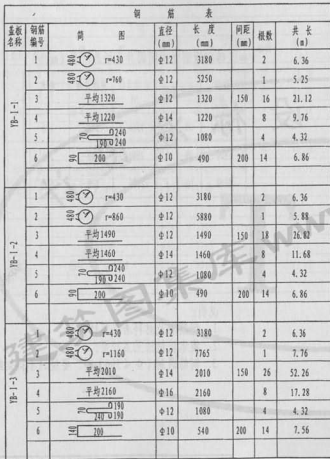 钢筋表
盖板名称 钢筋编号 简图 直径(mm) 长度(mm) 间距(mm) 根数 共长(m)
YB-1-1
1 480 r=430 Φ12 3180 2 6.36
2 480 r=760 Φ12 5250 1 5.25
3 平均1320 Φ12 1320 150 16 21.12
4 平均1220 Φ14 1220 8 9.76
5 70 240 190 240 Φ12 1080 4 4.32
6 90 200 Φ10 490 200 14 6.86
YB-1-2
1 480 r=430 Φ12 3180 2 6.36
2 480 r=860 Φ12 5880 1 5.88
3 平均1490 Φ12 1490 150 18 26.82
4 平均1460 Φ14 1460 8 11.68
5 70 240 190 240 Φ12 1080 4 4.32
6 90 200 Φ10 490 200 14 6.86
YB-1-3
1 480 r=430 Φ12 3180 2 6.36
2 480 r=1160 Φ12 7765 1 7.76
3 平均2010 Φ14 2010 150 26 52.26
4 平均2160 Φ16 2160 8 17.28
5 70 190 240 190 Φ12 1080 4 4.32
6 140 200 Φ10 540 200 14 7.56
建筑图集库